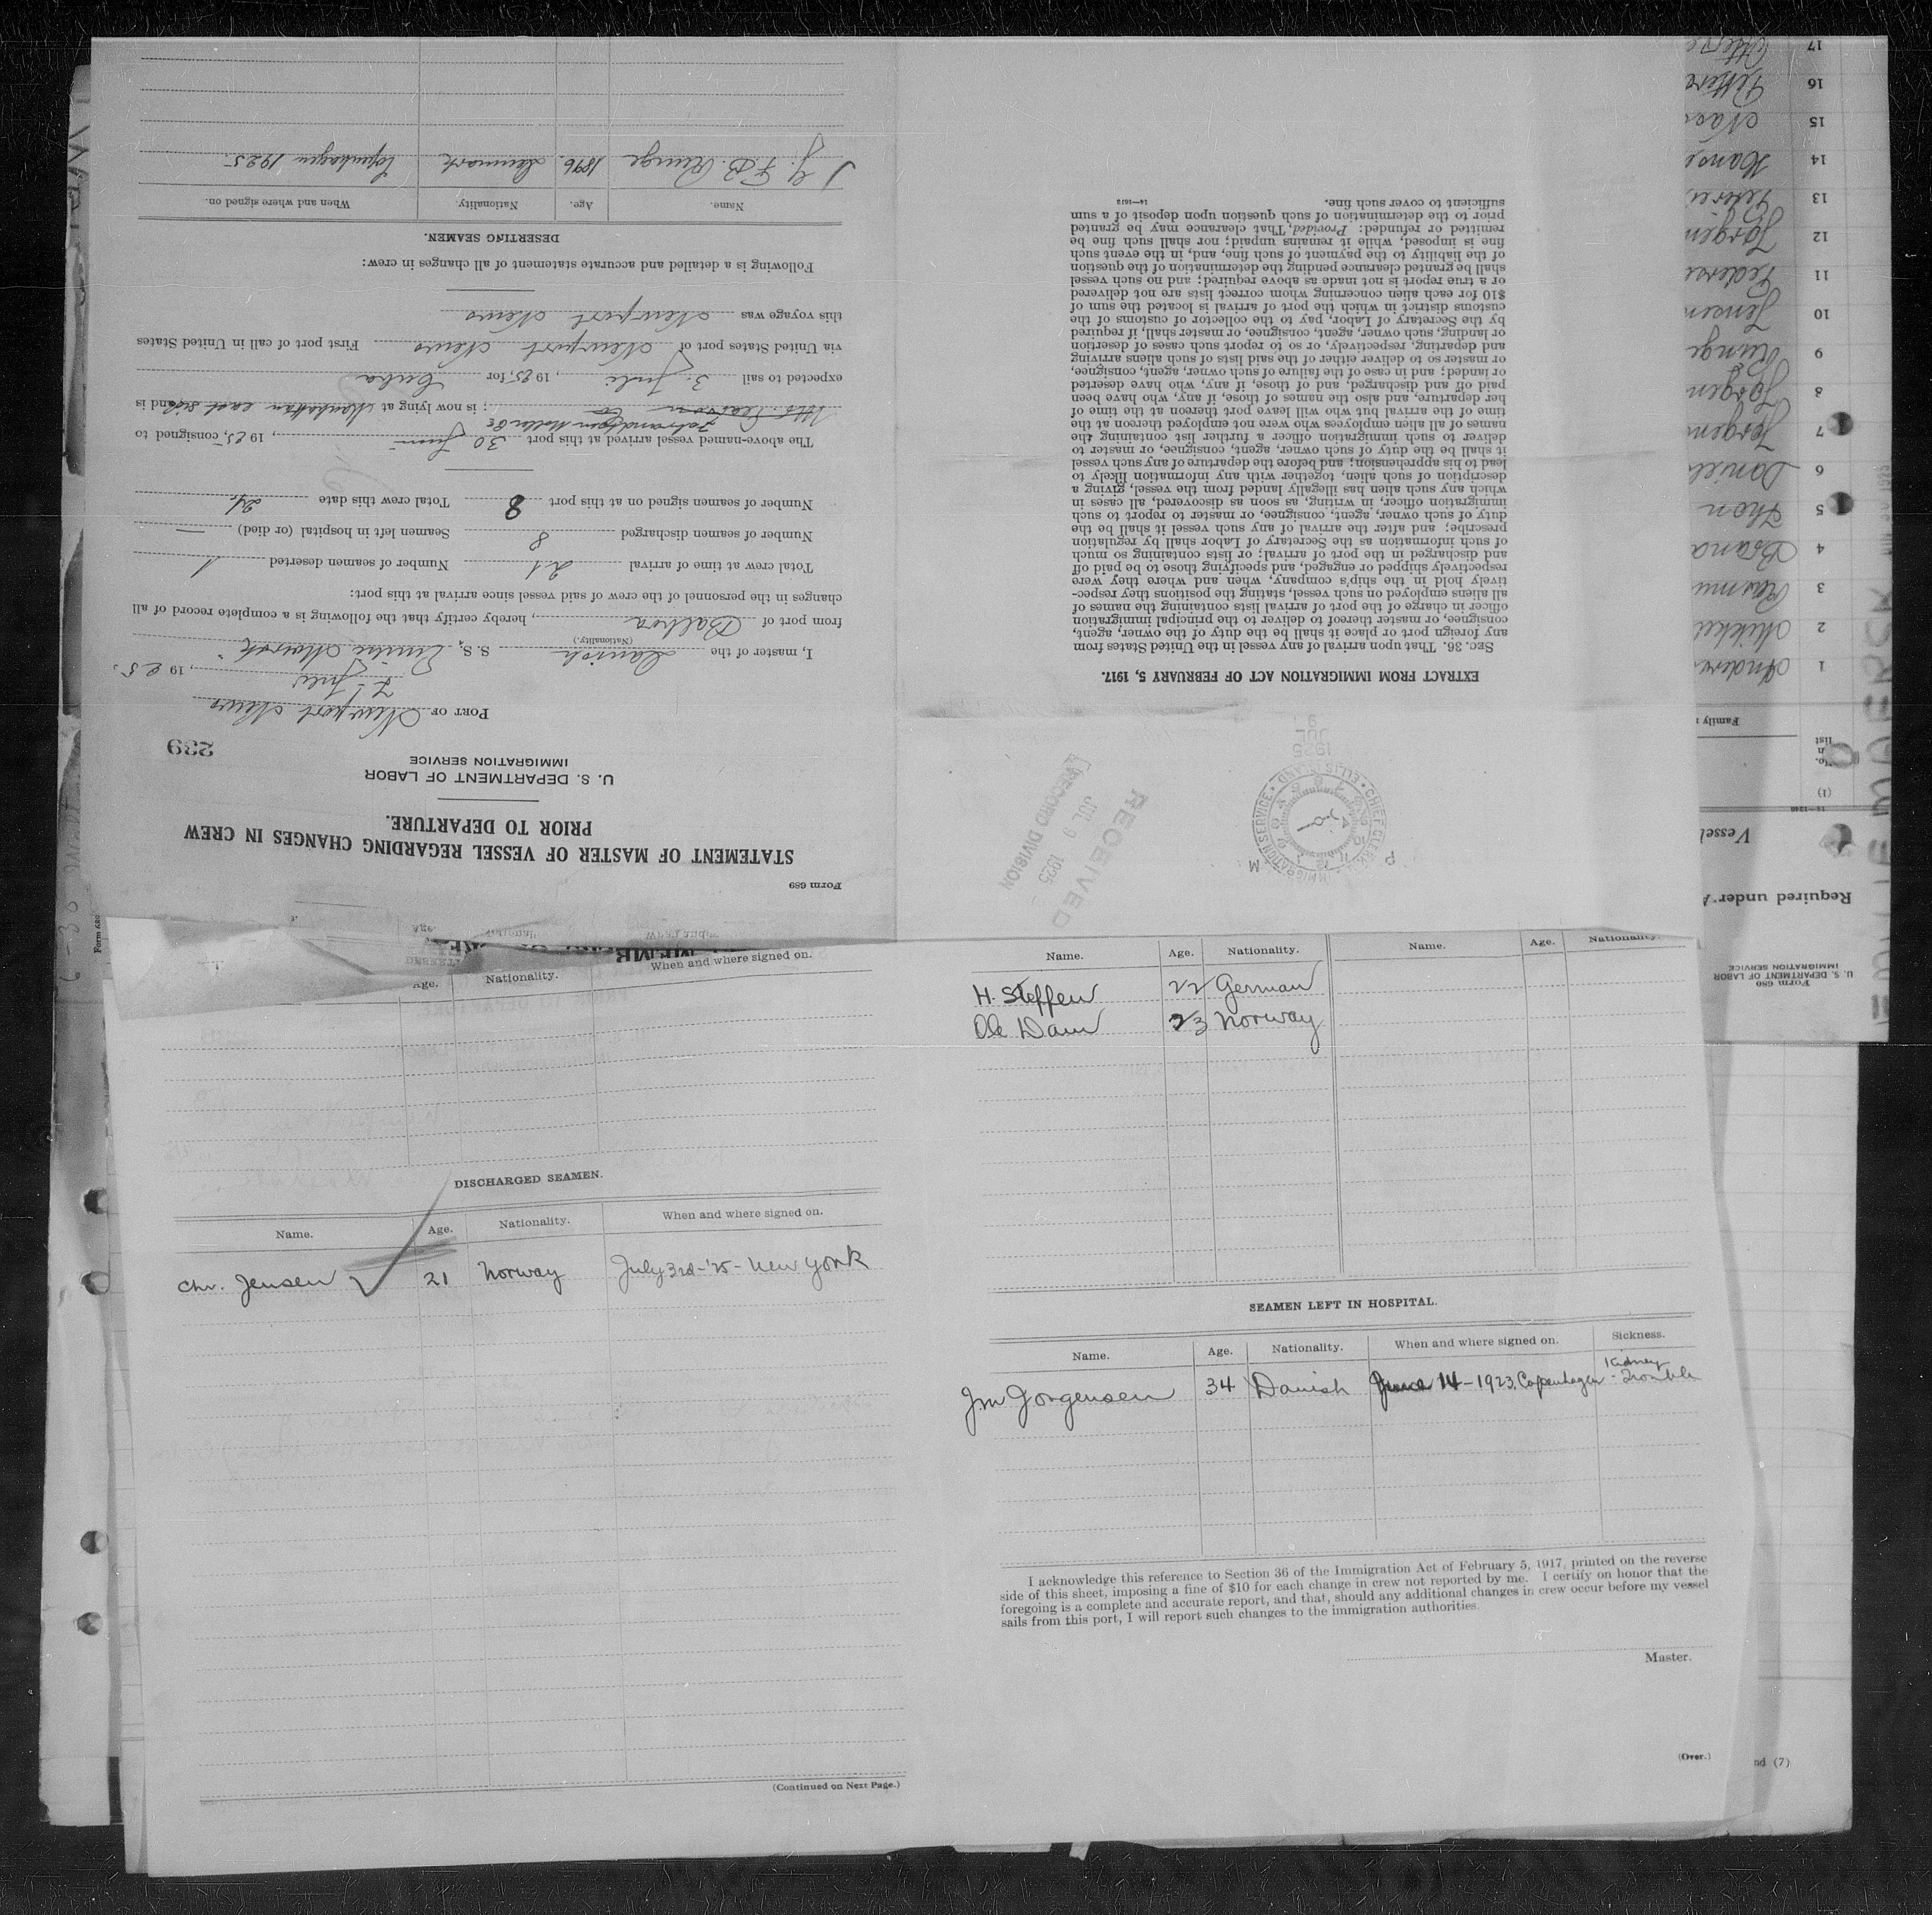 Form 689
STATEMENT OF MASTER OF VESSEL REGARDING CHANGES IN CREW
PRIOR TO DEPARTURE.
U. S. DEPARTMENT OF LABOR
IMMIGRATION SERVICE
239
PORT OF Newport News
, 19 25.
I, master of the Danish S. S.
(Nationality.)
from port of Balboa, hereby certify that the following is a complete record of all
changes in the personnel of the crew of said vessel since arrival at this port:
Total crew at time of arrival 21 Number of seamen deserted 1
Number of seamen discharged 8 Seamen left in hospital (or died) —
Number of seamen signed on at this port 8 Total crew this date 21
The above-named vessel arrived at this port 30 Juni, 1925, consigned to
; is now lying at and is
expected to sail 3. Juli, 1925, for Cuba
via United States port of Newport News First port of call in United States
this voyage was Newport News
Following is a detailed and accurate statement of all changes in crew:
DESERTING SEAMEN.
Name. Age. Nationality. When and where signed on.
F.B. Runge 1896. Denmark Copenhagen 1925.
EXTRACT FROM IMMIGRATION ACT OF FEBRUARY 5, 1917.
SEC. 36. That upon arrival of any vessel in the United States from
any foreign port or place it shall be the duty of the owner, agent,
consignee, or master thereof to deliver to the principal immigration
officer in charge of the port of arrival lists containing the names of
all aliens employed on such vessel, stating the positions they respec-
tively hold in the ship's company, when and where they were
respectively shipped or engaged, and specifying those to be paid off
and discharged in the port of arrival; or lists containing so much
of such information as the Secretary of Labor shall by regulation
prescribe; and after the arrival of any such vessel it shall be the
duty of such owner, agent, consignee, or master to report to such
immigration officer, in writing, as soon as discovered, all cases in
which any such alien has illegally landed from the vessel, giving a
description of such alien, together with any information likely to
lead to his apprehension; and before the departure of any such vessel
it shall be the duty of such owner, agent, consignee, or master to
deliver to such immigration officer a further list containing the
names of all alien employees who were not employed thereon at the
time of the arrival but who will leave port thereon at the time of
her departure, and also the names of those, if any, who have been
paid off and discharged, and of those, if any, who have deserted
or landed; and in case of the failure of such owner, agent, consignee,
or master so to deliver either of the said lists of such aliens arriving
and departing, respectively, or so to report such cases of desertion
or landing, such owner, agent, consignee, or master shall, if required
by the Secretary of Labor, pay to the collector of customs of the
customs district in which the port of arrival is located the sum of
$10 for each alien concerning whom correct lists are not delivered
or a true report is not made as above required; and no such vessel
shall be granted clearance pending the determination of the question
of the liability to the payment of such fine, and, in the event such
fine is imposed, while it remains unpaid; nor shall such fine be
remitted or refunded: Provided, That clearance may be granted
prior to the determination of such question upon deposit of a sum
sufficient to cover such fine.
RECEIVED
JUL 9 1925
RECORD DIVISION
CHIEF CLERK
IMMIGRATION SERVICE
ELLIS ISLAND
1925
JUL
9
P M
Form 680
U. S. DEPARTMENT OF LABOR
IMMIGRATION SERVICE
Required under A
Vessel
(1)
No.
list
Family
1
2
3
4
5
6
7
8 Jorgen
9 Runge
10 Jensen
11 Peders
12 Jorgen
13
14 Hans
15
16
17
Age. Nationality. When and where signed on.
DISCHARGED SEAMEN.
Name. Age. Nationality. When and where signed on.
Chr. Jensen 21 Norway July 3rd-'25- New York
(Continued on Next Page.)
Name. Age. Nationality. Name. Age. Nationality.
H. Steffen 22 German
Ole Dam 23 Norway
SEAMEN LEFT IN HOSPITAL.
Name. Age. Nationality. When and where signed on. Sickness.
J.M Jorgensen 34 Danish June 14-1923. Copenhagen - Kidney Trouble
I acknowledge this reference to Section 36 of the Immigration Act of February 5, 1917, printed on the reverse
side of this sheet, imposing a fine of $10 for each change in crew not reported by me. I certify on honor that the
foregoing is a complete and accurate report, and that, should any additional changes in crew occur before my vessel
sails from this port, I will report such changes to the immigration authorities.
Master.
(Over.)
nd (7)